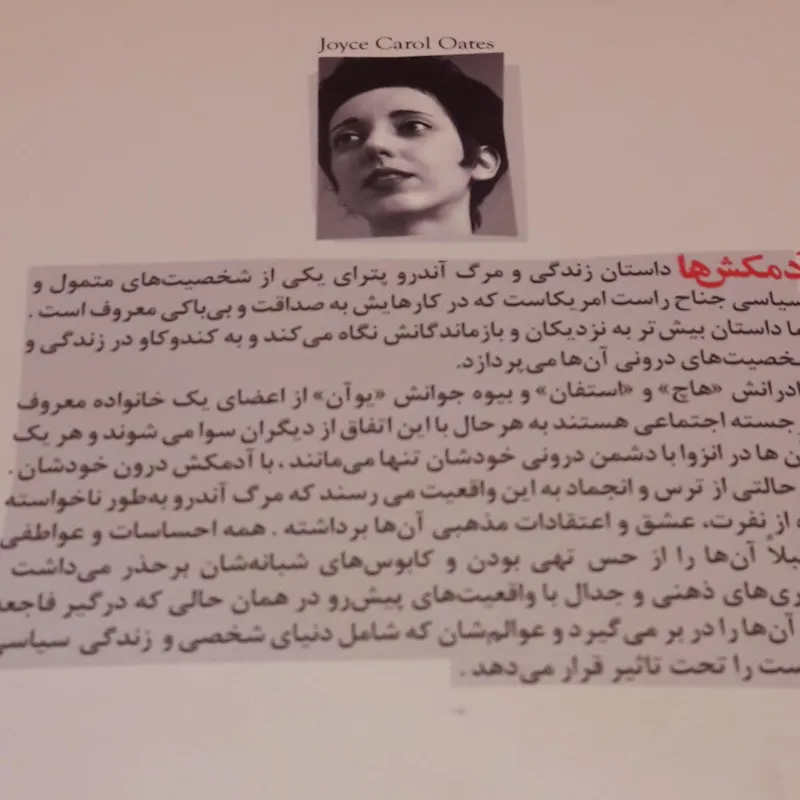 Joyce Carol Oates
آدمکش‌ها داستان زندگی و مرگ آندرو پترای یکی از شخصیت‌های متمول و
سیاسی جناح راست امریکاست که در کارهایش به صداقت و بی‌باکی معروف است .
داستان بیش‌تر به نزدیکان و بازماندگانش نگاه می‌کند و به کندوکاو در زندگی و
شخصیت‌های درونی آن‌ها می‌پردازد.
«هاچ» و «استفان» و بیوه جوانش «یوآن» از اعضای یک خانواده معروف
اجتماعی هستند به هر حال با این اتفاق از دیگران سوا می شوند و هر یک
ها در انزوا با دشمن درونی خودشان تنها می‌مانند ، با آدمکش درون خودشان .
حالتی از ترس و انجماد به این واقعیت می رسند که مرگ آندرو به‌طور ناخواسته
از نفرت، عشق و اعتقادات مذهبی آن‌ها برداشته . همه احساسات و عواطفی
آن‌ها را از حس تهی بودن و کابوس‌های شبانه‌شان برحذر می‌داشت
ذهنی و جدال با واقعیت‌های پیش‌رو در همان حالی که درگیر
آن‌ها را در بر می‌گیرد و عوالم‌شان که شامل دنیای شخصی و زندگی سیاسی
را تحت تاثیر قرار می‌دهد .